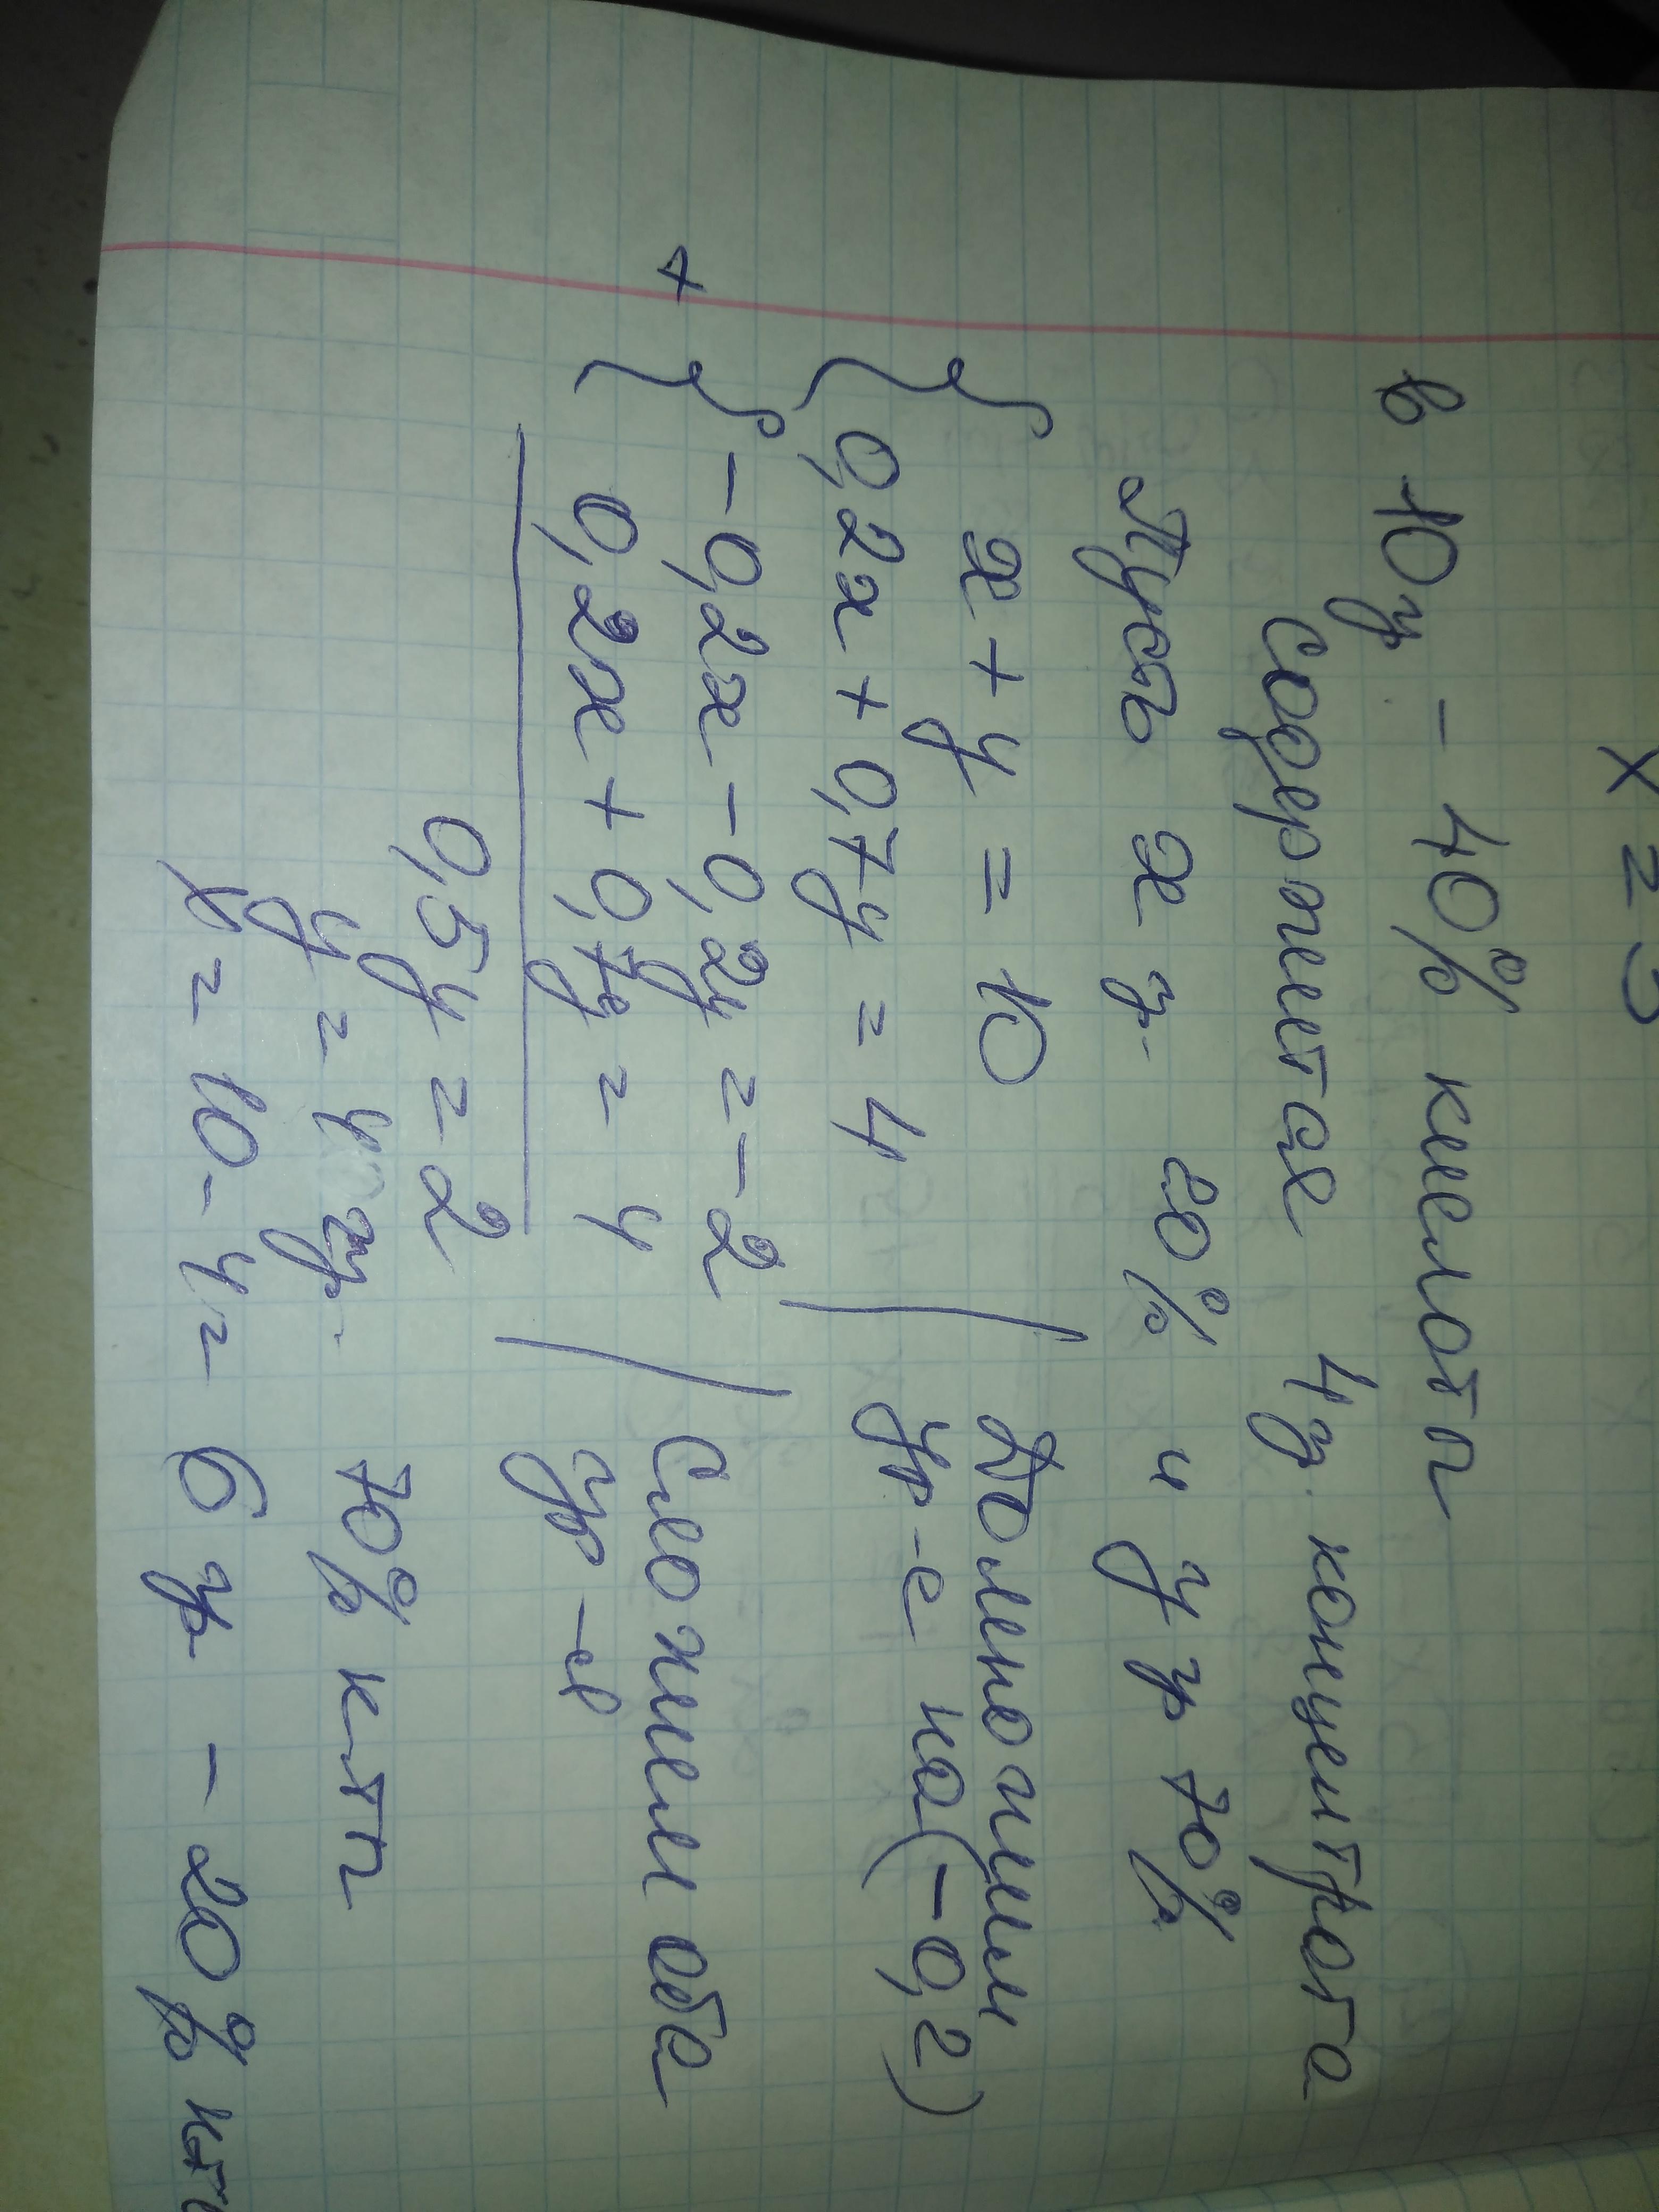 x = 3
в 10 г. - 40% кислоты
содержится 4 г. концентрата
Пусть x г. 20% и y гр 70%
{ x + y = 10 | Домножим
{ 0,2x + 0,7y = 4 | ур-е на (-0,2)
+ { -0,2x - 0,2y = -2 | Сложим обе
{ 0,2x + 0,7y = 4 | ур-я
0,5y = 2
y = 4 гр. 70% к-ты
x = 10 - 4 = 6 гр - 20% к-ты